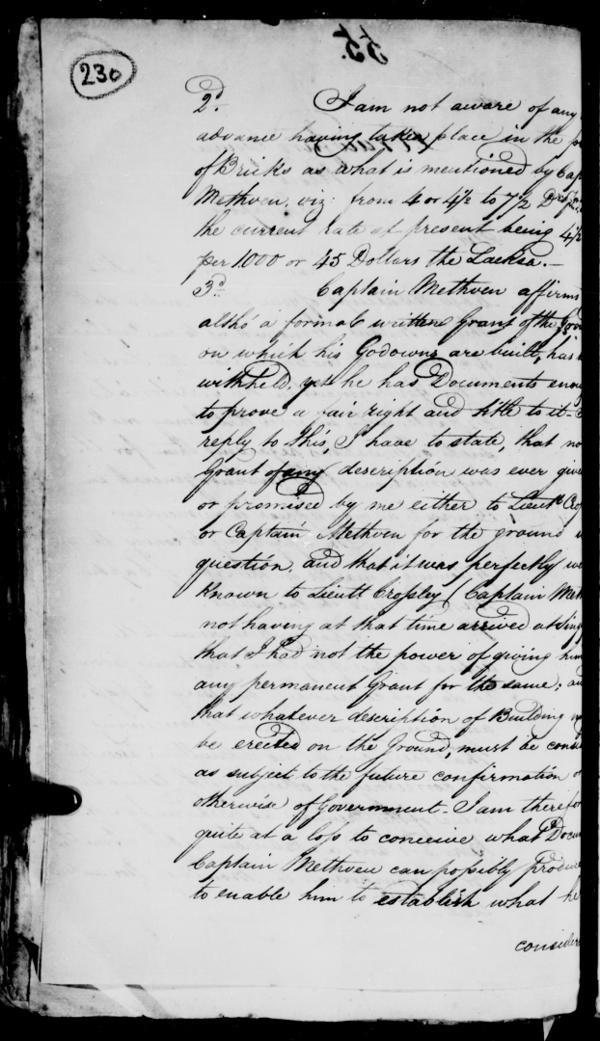 55.
230
2d. I am not aware of any
advance having taken place in the
of Bricks as what is mentioned by Cap
Methven, viz: from 4 or 4½ to 7½
the current rate at present being 4½
per 1000 or 45 Dollars the Lacksa.—
3d. Captain Methven affirms
altho' a formal written Grant of the
on which his Godowns are built, has
withheld, yet he has Documents enou
to prove a fair right and title to it.
reply to this, I have to state, that no
Grant of any description was ever give
or promised by me either to Lieutt. Cro
or Captain Methven for the ground
question, and that it was perfectly we
known to Lieutt Crossley (Captain Met
not having at that time arrived at Sing
that I had not the power of giving him
any permanent Grant for the same; an
that whatever description of Building m
be erected on the Ground, must be consi
as subject to the future confirmation o
otherwise of Government. I am therefo
quite at a loss to conceive what Docu
Captain Methven can possibly produce
to enable him to establish what he
consider